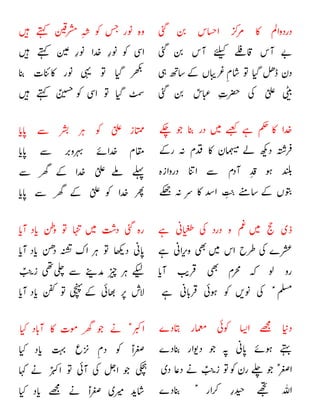 دردوالم کا مرکزِ احساس بن گئی
بے آس قافلے کیلئے آس بن گئی
دن ڈھل گیا تو شامِ غریباں کے ساتھ ہی
بیٹی علیؑ کی حضرتِ عباسؑ بن گئی
وہ نور جس کو شہِ مشرقین کہتے ہیں
اسی کو نورِ خدا نورِ عین کہتے ہیں
بکھر گیا تو یہی نور کائنات بنا
سمٹ گیا تو اسی کو حسینؑ کہتے ہیں
خدا کا حکم ہے کعبے میں در بنا جو چکے
فرشتہ دیکھ لے میہمان کا نہ قدم رکے
بلند ہو قدِ آدم سے اتنا دروازہ
بتوں کے سامنے بنتِ اسد کا سر نہ جھکے
ممتاز علیؑ کو ہر بشر سے پایا
مقام خدائے بہروبر سے پایا
پہلے ملے علیؑ خدا کے گھر سے
پھر خدا کو علیؑ کے گھر سے پایا
ذی حج میں غم و درد کی طغیانی ہے
عشرے کی طرح اس میں بھی ویرانی ہے
رو لو کہ محرم بھی قریب آیا
مسلمؑ کی نویں کو ہوئی قربانی ہے
رہ گئی دشت میں تنہا تو وطن یاد آیا
پانی دیکھا تو ہر اک تشنہ دہن یاد آیا
لیکے ہر چیز مدینے سے چلی تھی زینبؑ
لاش پر بھائی کے پہنچی تو کفن یاد آیا
دنیا مجھے ایسا کوئی معمار بتادے
بہتے ہوئے پانی پہ جو دیوار بنادے
اصغرؑ جو چلے رن کو تو زینبؑ نے دعا دی
اللہ تجھے حیدرِ کرارؑ بنادے
اکبرؑ نے جو گھر موت کا آباد کیا
صغراؑ کو دمِ نزع بہت یاد کیا
ہچکی جو اجل کی آئی تو اکبرؑ نے کہا
شاید میری صغراؑ نے مجھے یاد کیا